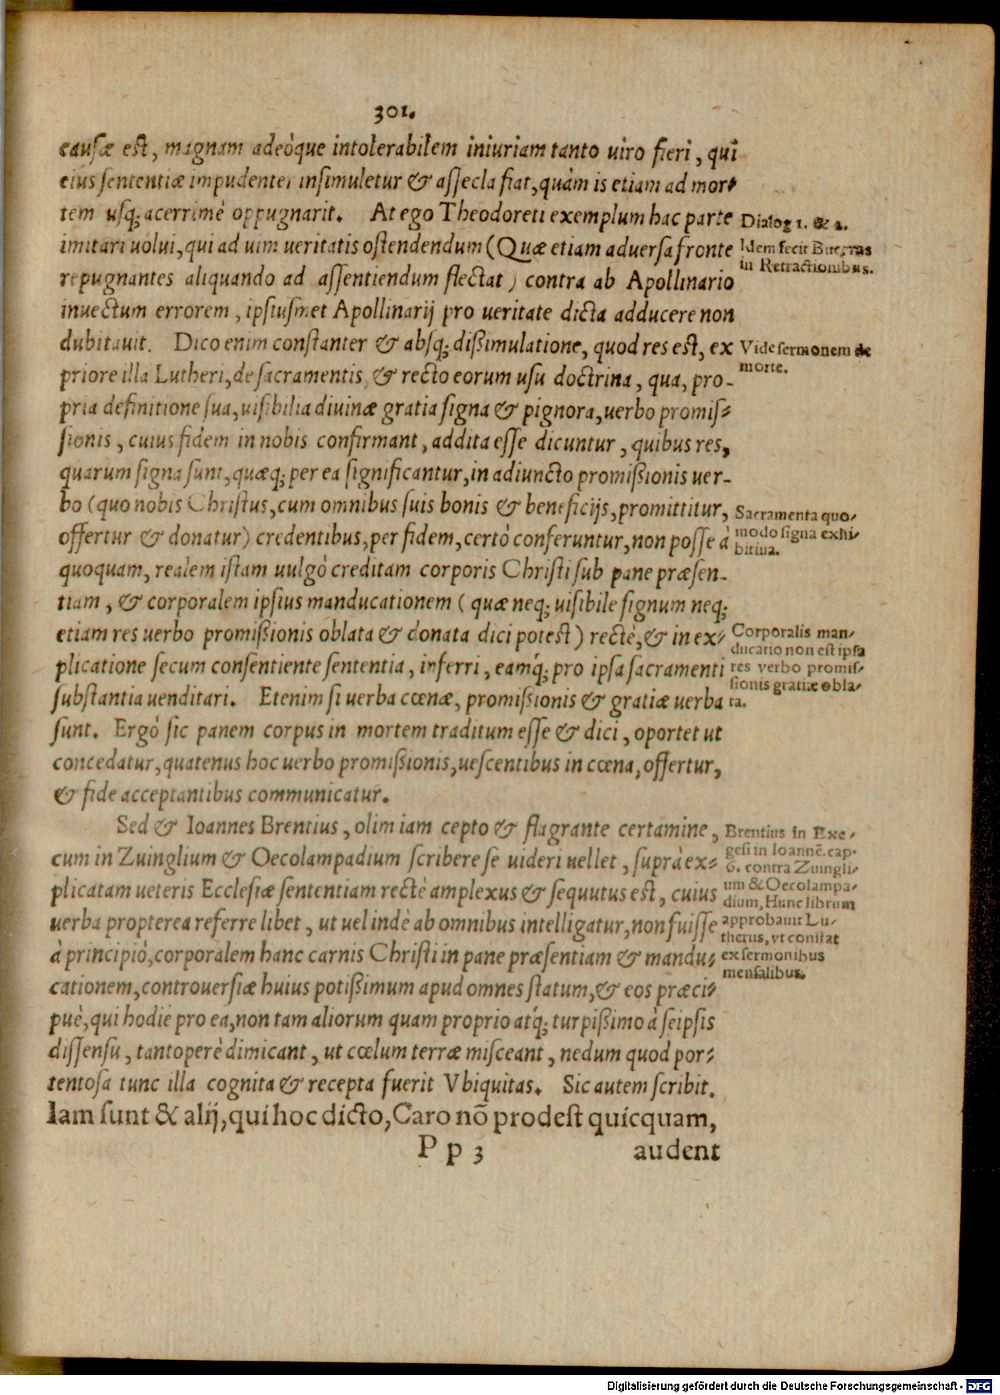 301.
causæ est, magnam adeòque intolerabilem iniuriam tanto uiro fieri, qui
eius sententiæ impudenter insimuletur & assecla fiat, quàm is etiam ad mor-
tem usq; acerrimè oppugnarit. At ego Theodoreti exemplum hac parte
imitari uolui, qui ad uim ueritatis ostendendum (Quæ etiam aduersa fronte
repugnantes aliquando ad assentiendum flectat) contra ab Apollinario
inuectum errorem, ipsiusmet Apollinarij pro ueritate dicta adducere non
dubitauit. Dico enim constanter & absq; dißimulatione, quod res est, ex
priore illa Lutheri, de sacramentis & recto eorum usu doctrina, qua, pro-
pria definitione sua, uisibilia diuinæ gratia signa & pignora, uerbo promis-
sionis, cuius fidem in nobis confirmant, addita esse dicuntur, quibus res,
quarum signa sunt, quæq; per ea significantur, in adiuncto promißionis uer-
bo (quo nobis Christus, cum omnibus suis bonis & beneficijs, promittitur,
offertur & donatur) credentibus, per fidem, certò conferuntur, non posse à
quoquam, realem istam uulgò creditam corporis Christi sub pane præsen-
tiam, & corporalem ipsius manducationem (quæ neq; uisibile signum neq;
etiam res uerbo promißionis oblata & donata dici potest) rectè, & in ex-
plicatione secum consentiente sententia, inferri, eamq́; pro ipsa sacramenti
substantia uenditari. Etenim si uerba cœnæ, promißionis & gratiæ uerba
sunt. Ergò sic panem corpus in mortem traditum esse & dici, oportet ut
concedatur, quatenus hoc uerbo promißionis, uescentibus in cœna, offertur,
& fide acceptantibus communicatur.
Sed & Ioannes Brentius, olim iam cepto & flagrante certamine,
cum in Zuinglium & Oecolampadium scribere se uideri uellet, suprà ex-
plicatam ueteris Ecclesiæ sententiam rectè amplexus & sequutus est, cuius
uerba propterea referre libet, ut uel indè ab omnibus intelligatur, non fuisse
à principiò, corporalem hanc carnis Christi in pane præsentiam & mandu-
cationem, controuersiæ huius potißimum apud omnes statum, & eos præci-
puè, qui hodie pro ea, non tam aliorum quam proprio atq́; turpißimo à seipsis
dissensu, tantoperè dimicant, ut cœlum terræ misceant, nedum quod por-
tentosa tunc illa cognita & recepta fuerit Vbiquitas. Sic autem scribit.
Iam sunt & alij, qui hoc dicto, Caro nō prodest quicquam,
P p 3
audent
Dialog 1. & 2.
Idem fecit Bucerus
in Retractionibus.
Vide sermonem de
morte.
Sacramenta quo-
modo signa exhi-
bitiua.
Corporalis man-
ducatio non est ipsa
res verbo promis-
sionis gratiæ obla-
ta.
Brentius in Exe-
gesi in Ioannē. cap.
6. contra Zuingli-
um & Oecolampa-
dium, Hunc librum
approbauit Lu-
therus, vt constat
ex sermonibus
mensalibus.
Digitalisierung gefördert durch die Deutsche Forschungsgemeinschaft - DFG